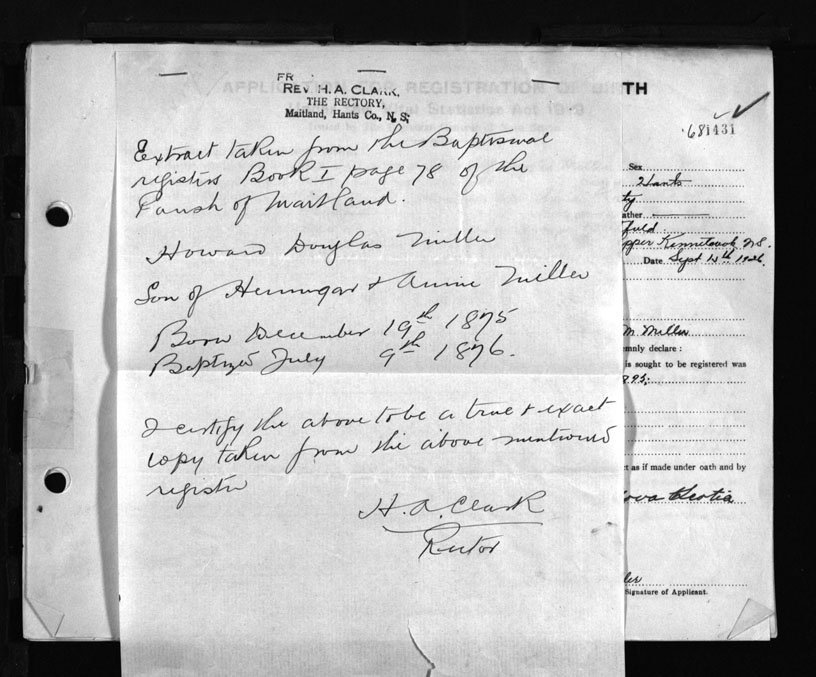 FR
REV. H. A. CLARK,
THE RECTORY,
Maitland, Hants Co., N. S.
Extract taken from the Baptismal
registers Book I page 78 of the
Parish of Maitland.
Howard Douglas Miller
Son of & Annie Miller
Born December 19th 1875
Baptized July 9th 1876.
I certify the above to be a true & exact
copy taken from the above mentioned
register
H. A. Clark
Rector
APPLICATION FOR REGISTRATION OF BIRTH
681431
Sex
Hants
ty
ather
field
pper Kennetcook N.S.
Date Sept 14th 1926.
M. Miller
emnly declare :
is sought to be registered was
895:
ct as if made under oath and by
ova Scotia
ler
Signature of Applicant.